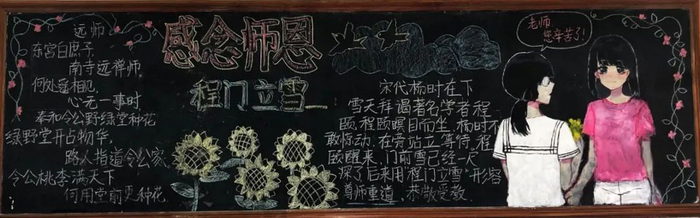 远师
东宫白庶子，
南寺远禅师
何处遥相见，
心无一事时
奉和令公绿野堂种花
绿野堂开占物华，
路人指道令公家
令公桃李满天下
何用堂前更种花
感念师恩
程门立雪
宋代杨时在下
雪天拜谒著名学者程
颐，程颐瞑目而坐，杨时不
敢惊动，在旁站立等待，程
颐醒来，门前雪已经一尺
深了后来用程门立雪形容
尊师重道，恭敬受教
老师
您辛苦了!